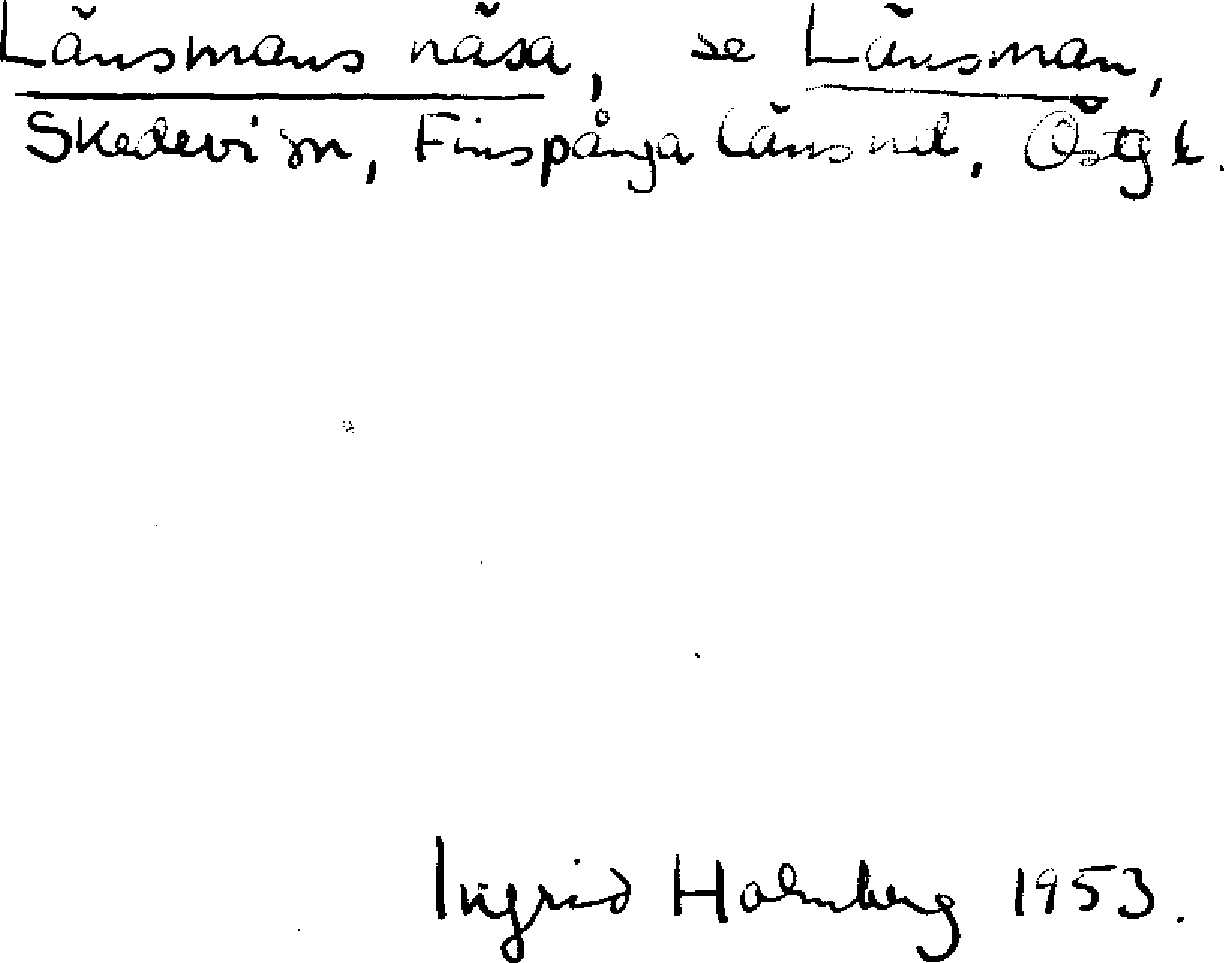 Länsmans näsa, se Länsman,
Skedevi sn, Finspånga länshd, Östgl.
Ingrid Holmberg 1953.